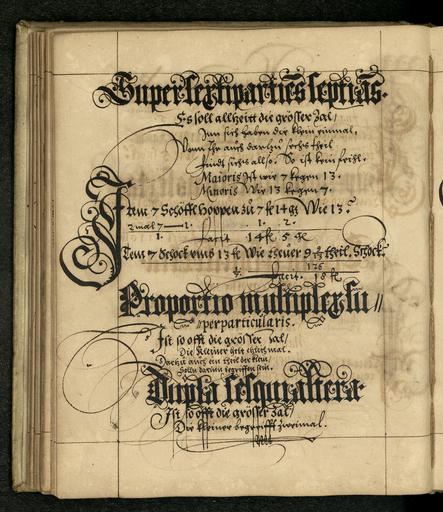 Supersextipartiēs septiās.
Es soll allheirt die grösser Zal/
Inn sich haben die klein einmal,
Vonn Ihr auch darzu sechs theil
findt sichs also. So ist kein feihl.
Maioris Ist wie 7 kegen 13.
Minoris Wie 13 kegen 7.
Item 7 Schöffl Hoppen zu 7 fl 14 gl Wie 13?
2 mal 7 — 1. 1. 2.
1. facit 14 fl 5
Item 7 Schock umb 13 fl Wie theuer 9 theil Schock.
facit. 18 fl
Proportio multiplex su//
perparticularis.
Ist so offt die grösser Zal/
Die Kleiner helt etlich mal.
Darzu auch ein theil der klein
Solln darinn begriffen sein.
Dupla sesquialtera.
Ist so offt die grösser Zal/
Die kleiner begreifft zweimal.